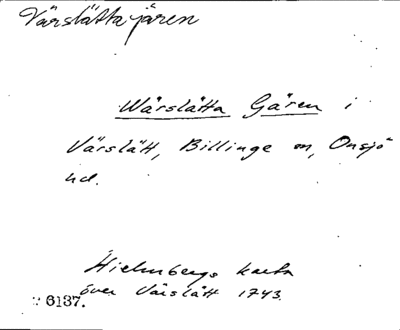 Värslättajären
Wärslätta Gären i
Värslätt, Billinge sn, Onsjö
hd.
Hielmbergs karta
över Värslätt 1743.
6137.